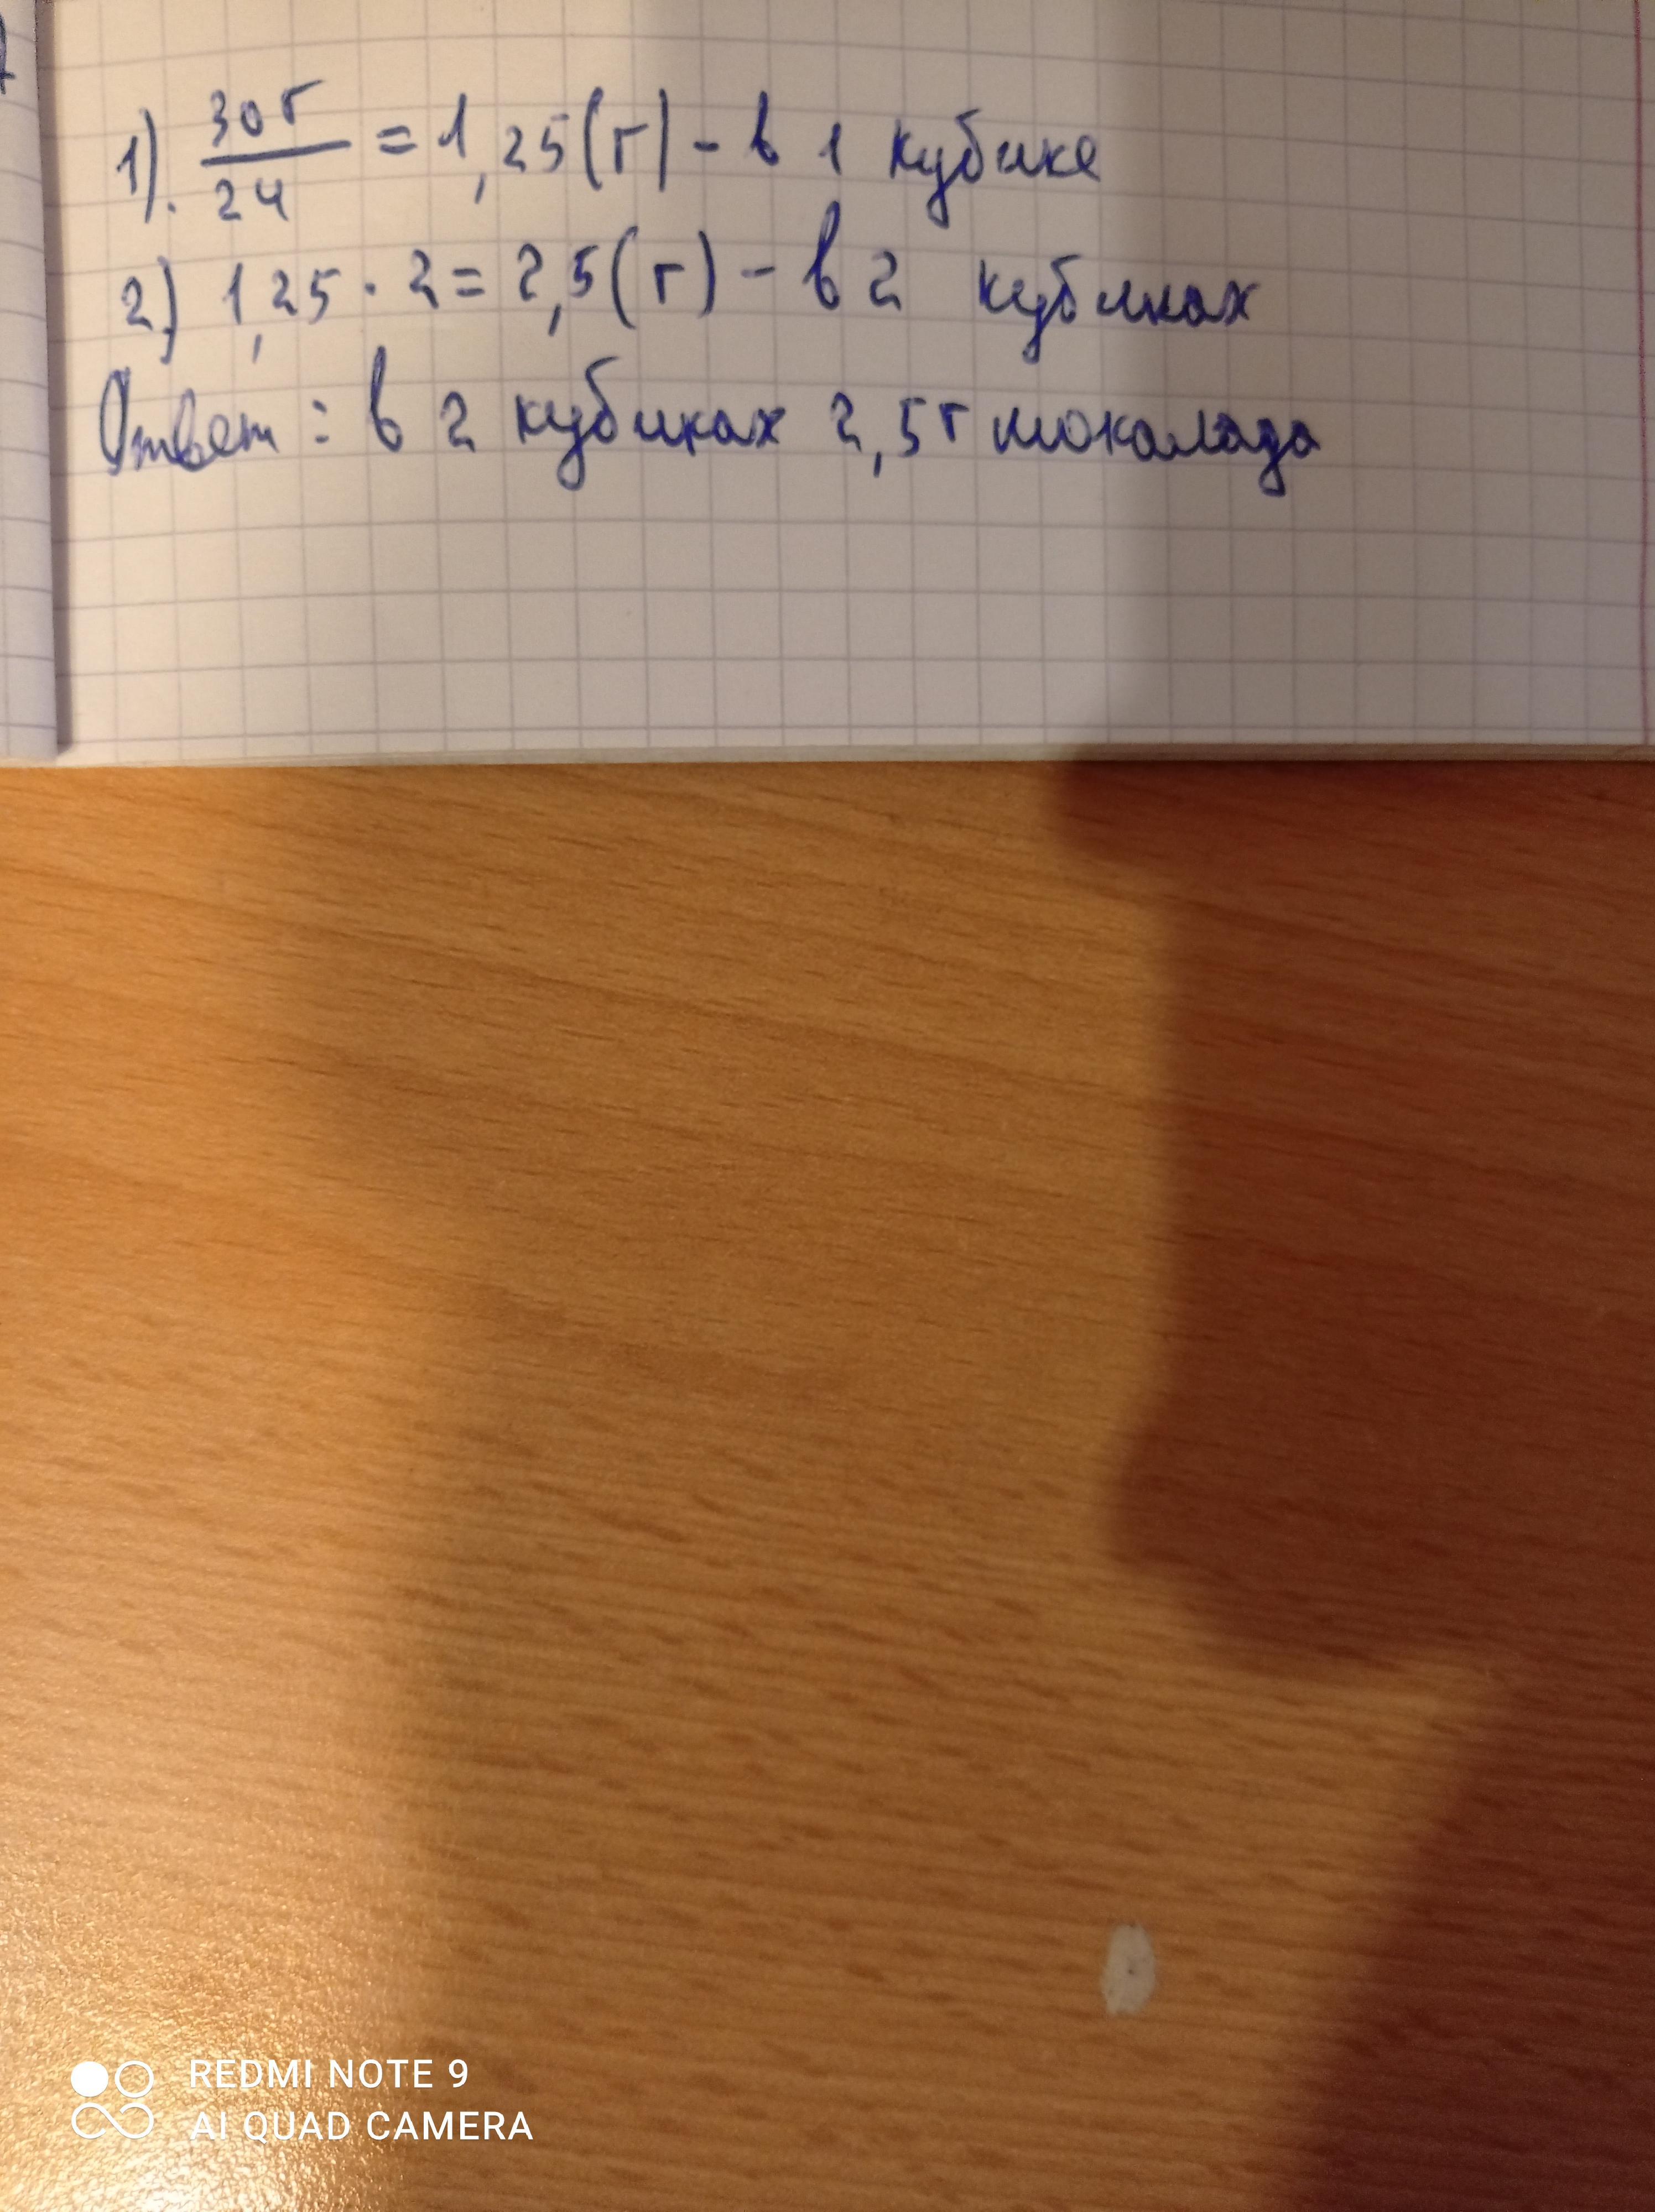 1). 30г/24 = 1,25(г) - в 1 кубике
2) 1,25 · 2 = 2,5(г) - в 2 кубиках
Ответ: в 2 кубиках 2,5г шоколада
REDMI NOTE 9
AI QUAD CAMERA